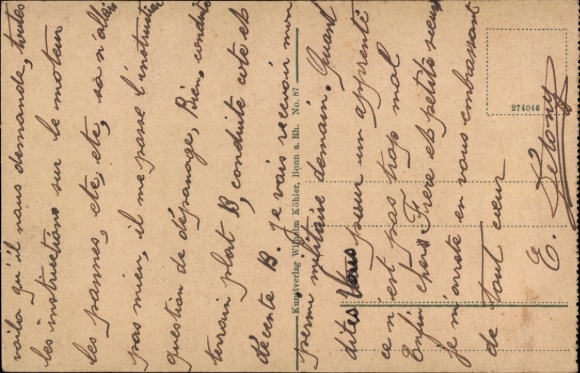 voila qu'il nous demande, toutes
les instructions sur le moteur
les pannes, etc, etc, sa n'allait
pas mien, il me passe l'instruction
question de dépanage, Bien, conduite
terrain plat B, conduite cote et
décente B. Je vais recevoir mon
permi militaire demain. Quand
dites Vous pour un apprenti
ce n'est pas trop mal
Enfin chers Frère et petite seur
je m'arrete en vous embrassant
de tout cœur
E. Létony
Kunstverlag Wilhelm Köhler, Bonn a. Rh. No. 87
274046